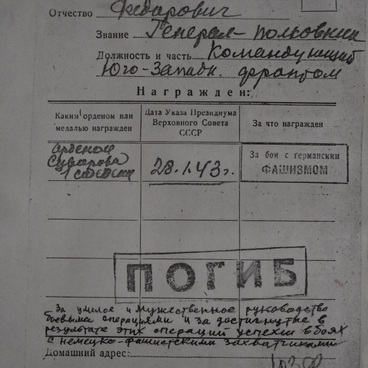 Отчество Федорович
Звание Генерал-полковник
Должность и часть Командующий
Юго-Западн. фронтом
Награжден:
Каким орденом или
медалью награжден
Дата Указа Президиума
Верховного Совета
СССР
За что награжден
орденом
Суворова
1 степени
28.1.43г.
За бои с германским
ФАШИЗМОМ
ПОГИБ
За умелое и мужественное руководство
боевыми операциями и за достигнутые в
результате этих операций успехи в боях
с немецко-фашистскими захватчиками
Домашний адрес: